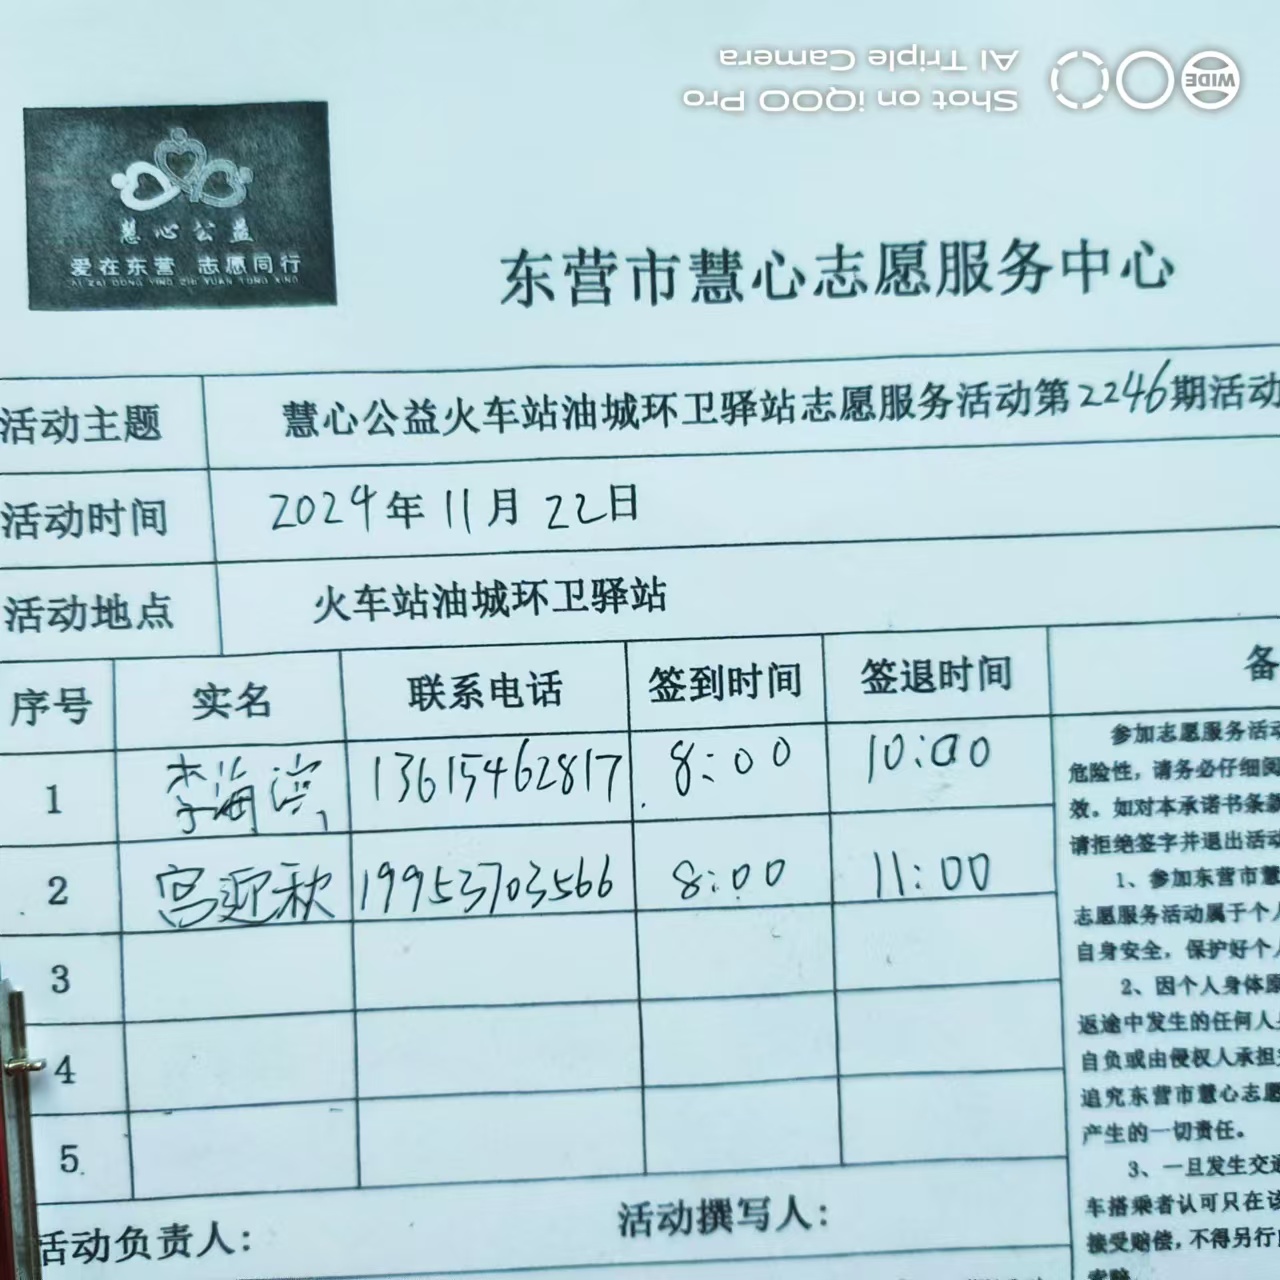 Shot on iQOO Pro
AI Triple Camera
WIDE
慧心公益
爱在东营 志愿同行
AI ZAI DONG YING ZHI YUAN TONG XING
东营市慧心志愿服务中心
活动主题 慧心公益火车站油城环卫驿站志愿服务活动第2246期活动
活动时间 2024年11月22日
活动地点 火车站油城环卫驿站
序号 实名 联系电话 签到时间 签退时间 备
1 李海滨 13615462817 8:00 10:00
2 宫迎秋 19953703566 8:00 11:00
3
4
5
参加志愿服务活动
危险性，请务必仔细阅
效。如对本承诺书条款
请拒绝签字并退出活动
1、参加东营市慧
志愿服务活动属于个人
自身安全，保护好个人
2、因个人身体原
返途中发生的任何人身
自负或由侵权人承担
追究东营市慧心志愿
产生的一切责任。
3、一旦发生交通
车搭乘者认可只在该
接受赔偿，不得另行
索赔
活动负责人： 活动撰写人：